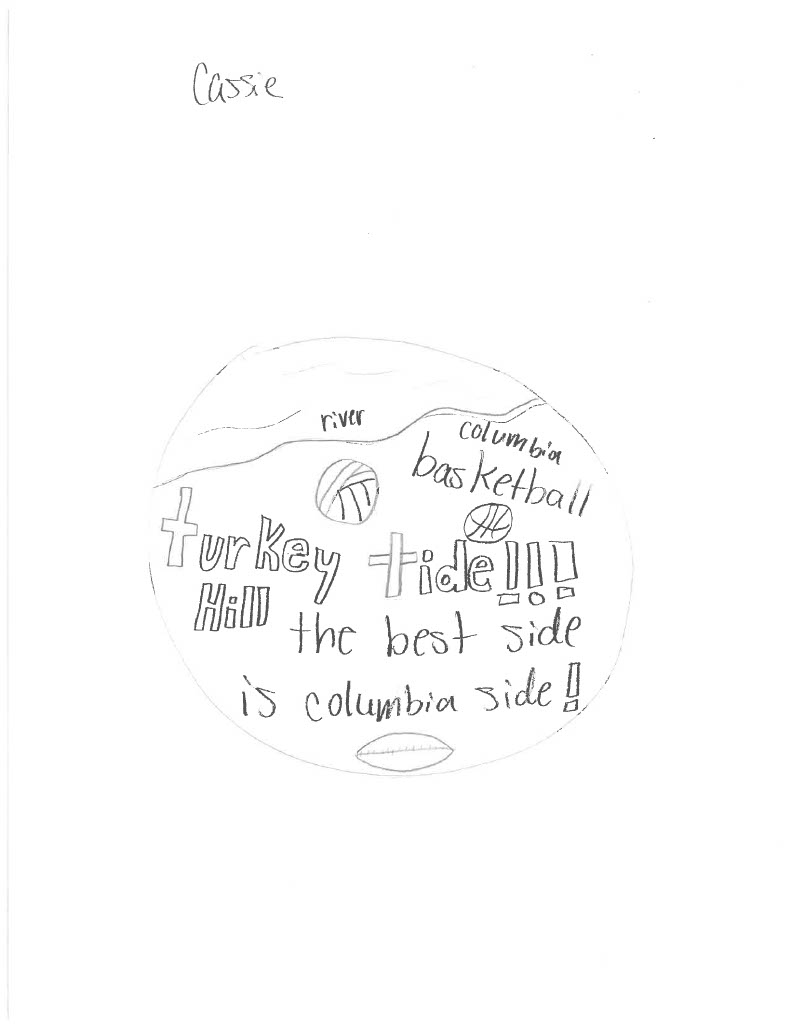 Cassie
river
columbia
basketball
turkey tide!!!
Hill
the best side
is columbia side!